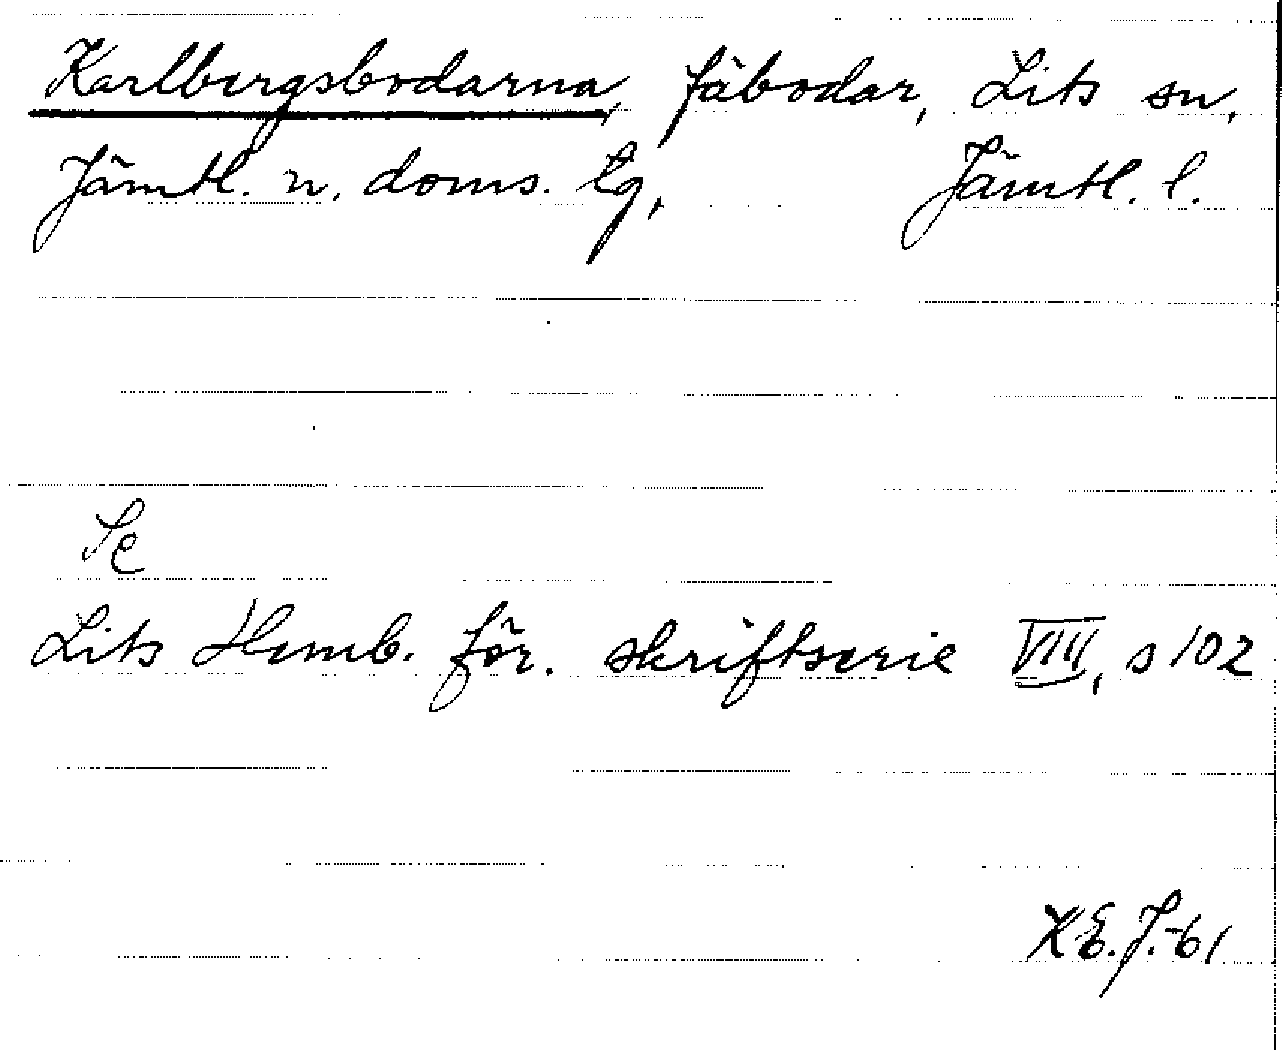 Karlbergsbodarna, fäbodar, Lits sn,
Jämtl. n. doms. tg, Jämtl. l.
Se
Lits Hemb. för. skriftserie VIII, s 102
K.E.J.-61